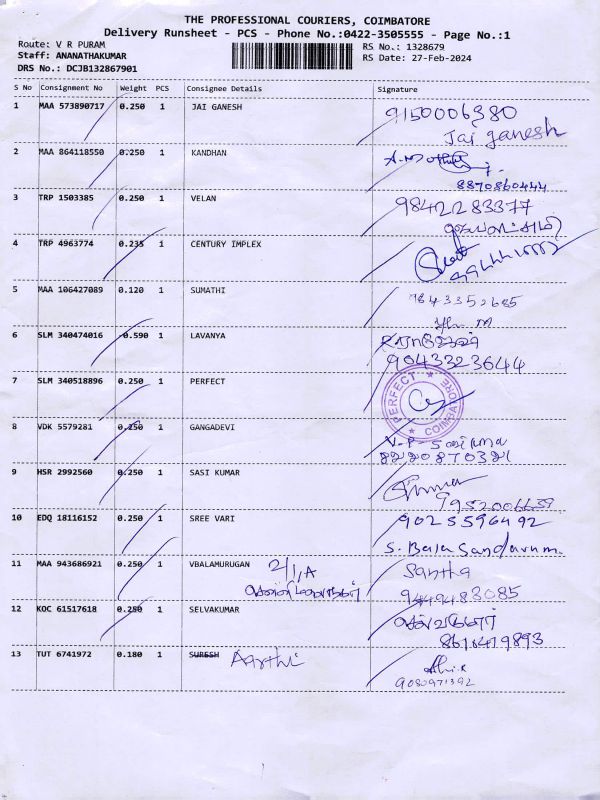 THE PROFESSIONAL COURIERS, COIMBATORE
Delivery Runsheet - PCS - Phone No.:0422-3505555 - Page No.:1
Route: V R PURAM
RS No.: 1328679
Staff: ANANATHAKUMAR
RS Date: 27-Feb-2024
DRS No.: DCJB132867901
S No Consignment No Weight PCS Consignee Details Signature
1 MAA 573890717 0.250 1 JAI GANESH 9150006380
Jai ganesh
2 MAA 864118550 0.250 1 KANDHAN
8870860444
3 TRP 1503385 0.250 1 VELAN 9842283377
4 TRP 4963774 0.235 1 CENTURY IMPLEX
5 MAA 106427089 0.120 1 SUMATHI 9843352685
6 SLM 340474016 0.590 1 LAVANYA
9043323644
7 SLM 340518896 0.250 1 PERFECT
PERFECT ★ COIMBATORE ★
8 VDK 5579281 0.250 1 GANGADEVI
9 HSR 2992560 0.250 1 SASI KUMAR
9952006639
10 EDQ 18116152 0.250 1 SREE VARI 9025596492
S. Bala Sundaram.
11 MAA 943686921 0.250 1 VBALAMURUGAN 2/1, A Santha
9449483085
12 KOC 61517618 0.250 1 SELVAKUMAR
8610419893
13 TUT 6741972 0.180 1 SURESH Aarthi
9080971392